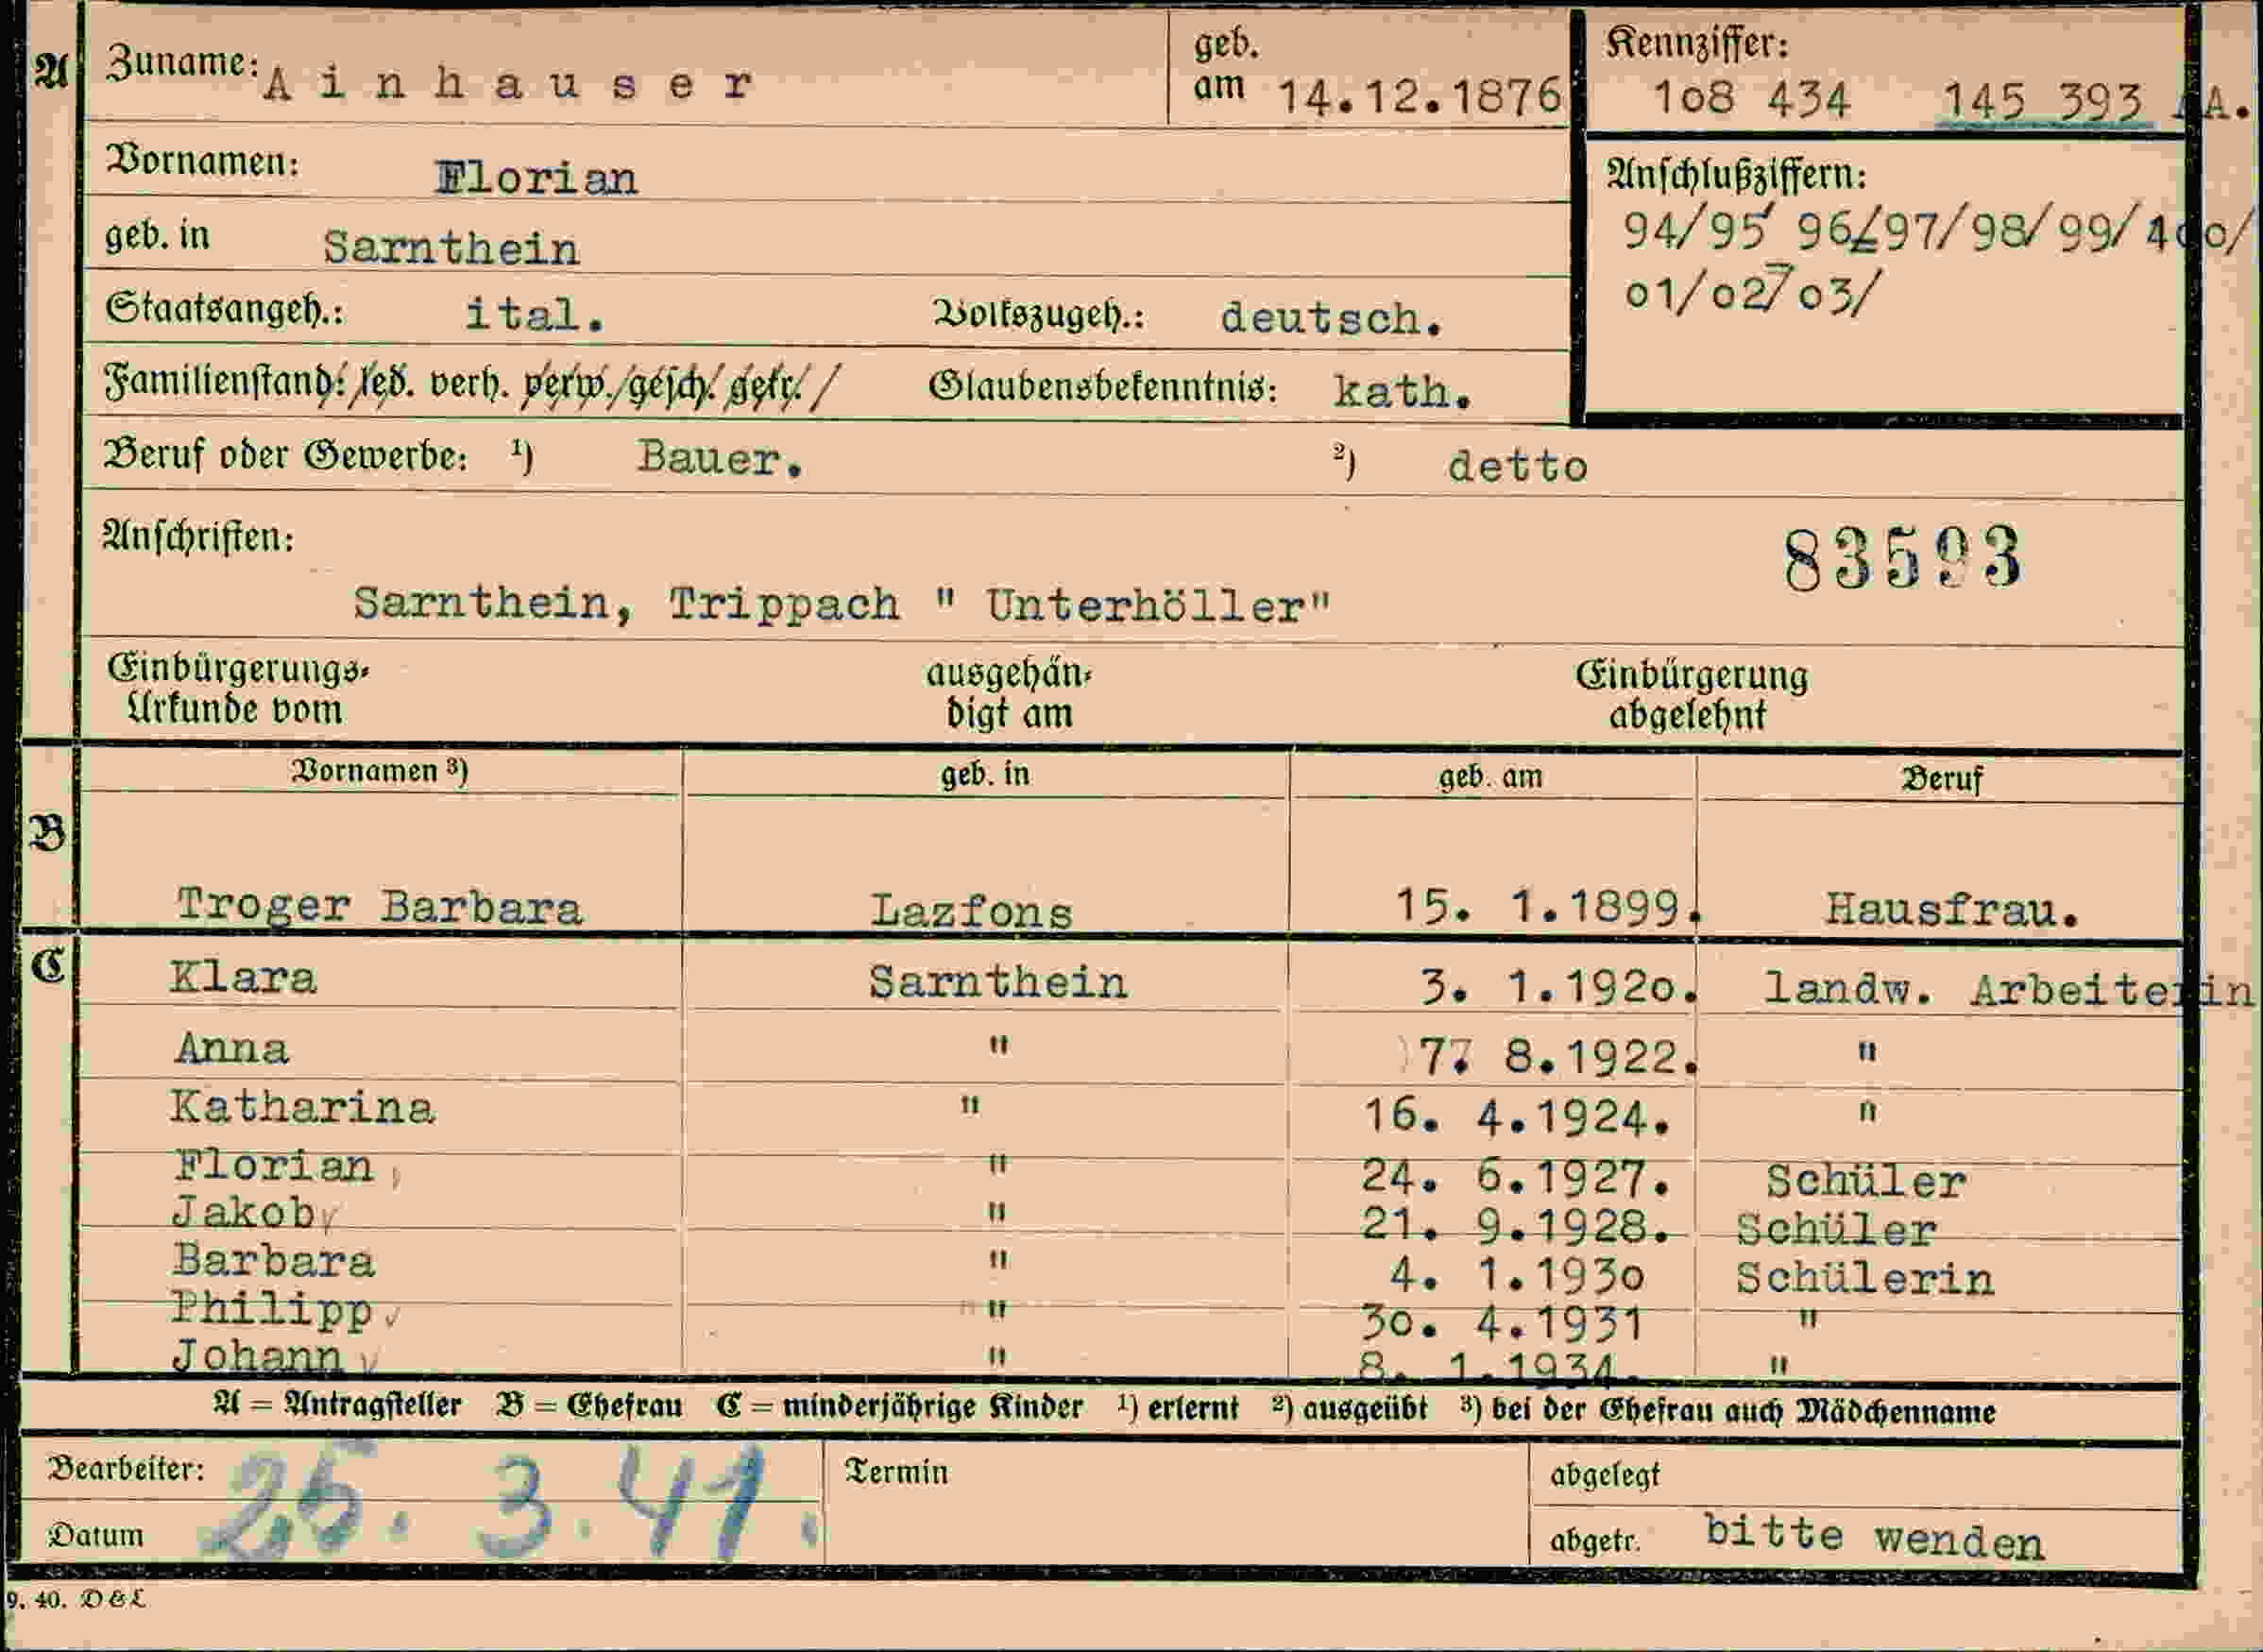 A Zuname: Ainhauser geb. am 14.12.1876 Kennziffer: 1o8 434 145 393 AA.
Vornamen: Florian Anschlußziffern:
94/95 96/97/98/99/4oo/
geb. in Sarnthein o1/o2/o3/
Staatsangeh.: ital. Volkszugeh.: deutsch.
Familienstand: led. verh. verw. gesch. getr. Glaubensbekenntnis: kath.
Beruf oder Gewerbe: ¹) Bauer. ²) detto
Anschriften: 83593
Sarnthein, Trippach " Unterhöller"
Einbürgerungs- ausgehän- Einbürgerung
Urkunde vom digt am abgelehnt
Vornamen ³) geb. in geb. am Beruf
B
Troger Barbara Lazfons 15. 1.1899. Hausfrau.
C Klara Sarnthein 3. 1.192o. landw. Arbeiterin
Anna " 7. 8.1922. "
Katharina " 16. 4.1924. "
Florian " 24. 6.1927. Schüler
Jakob " 21. 9.1928. Schüler
Barbara " 4. 1.193o Schülerin
Philipp " 3o. 4.1931 "
Johann " 8. 1.1934. "
A = Antragsteller B = Ehefrau C = minderjährige Kinder ¹) erlernt ²) ausgeübt ³) bei der Ehefrau auch Mädchenname
Bearbeiter: Termin abgelegt
Datum 25. 3.41. abgetr. bitte wenden
9. 40. D & L